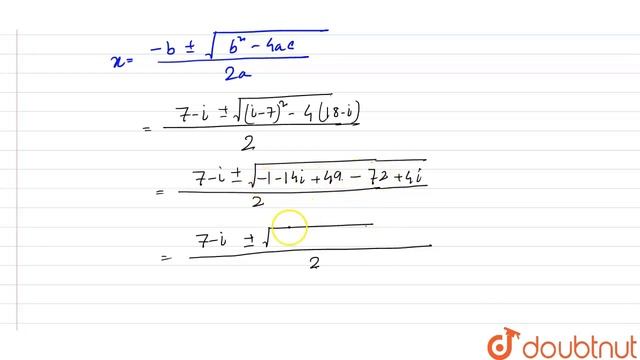 x = (-b ± √(b² - 4ac)) / 2a
= (7-i ± √((i-7)² - 4(18-i))) / 2
= (7-i ± √(-1-14i+49-72+4i)) / 2
= (7-i ± √ ) / 2
doubtnut